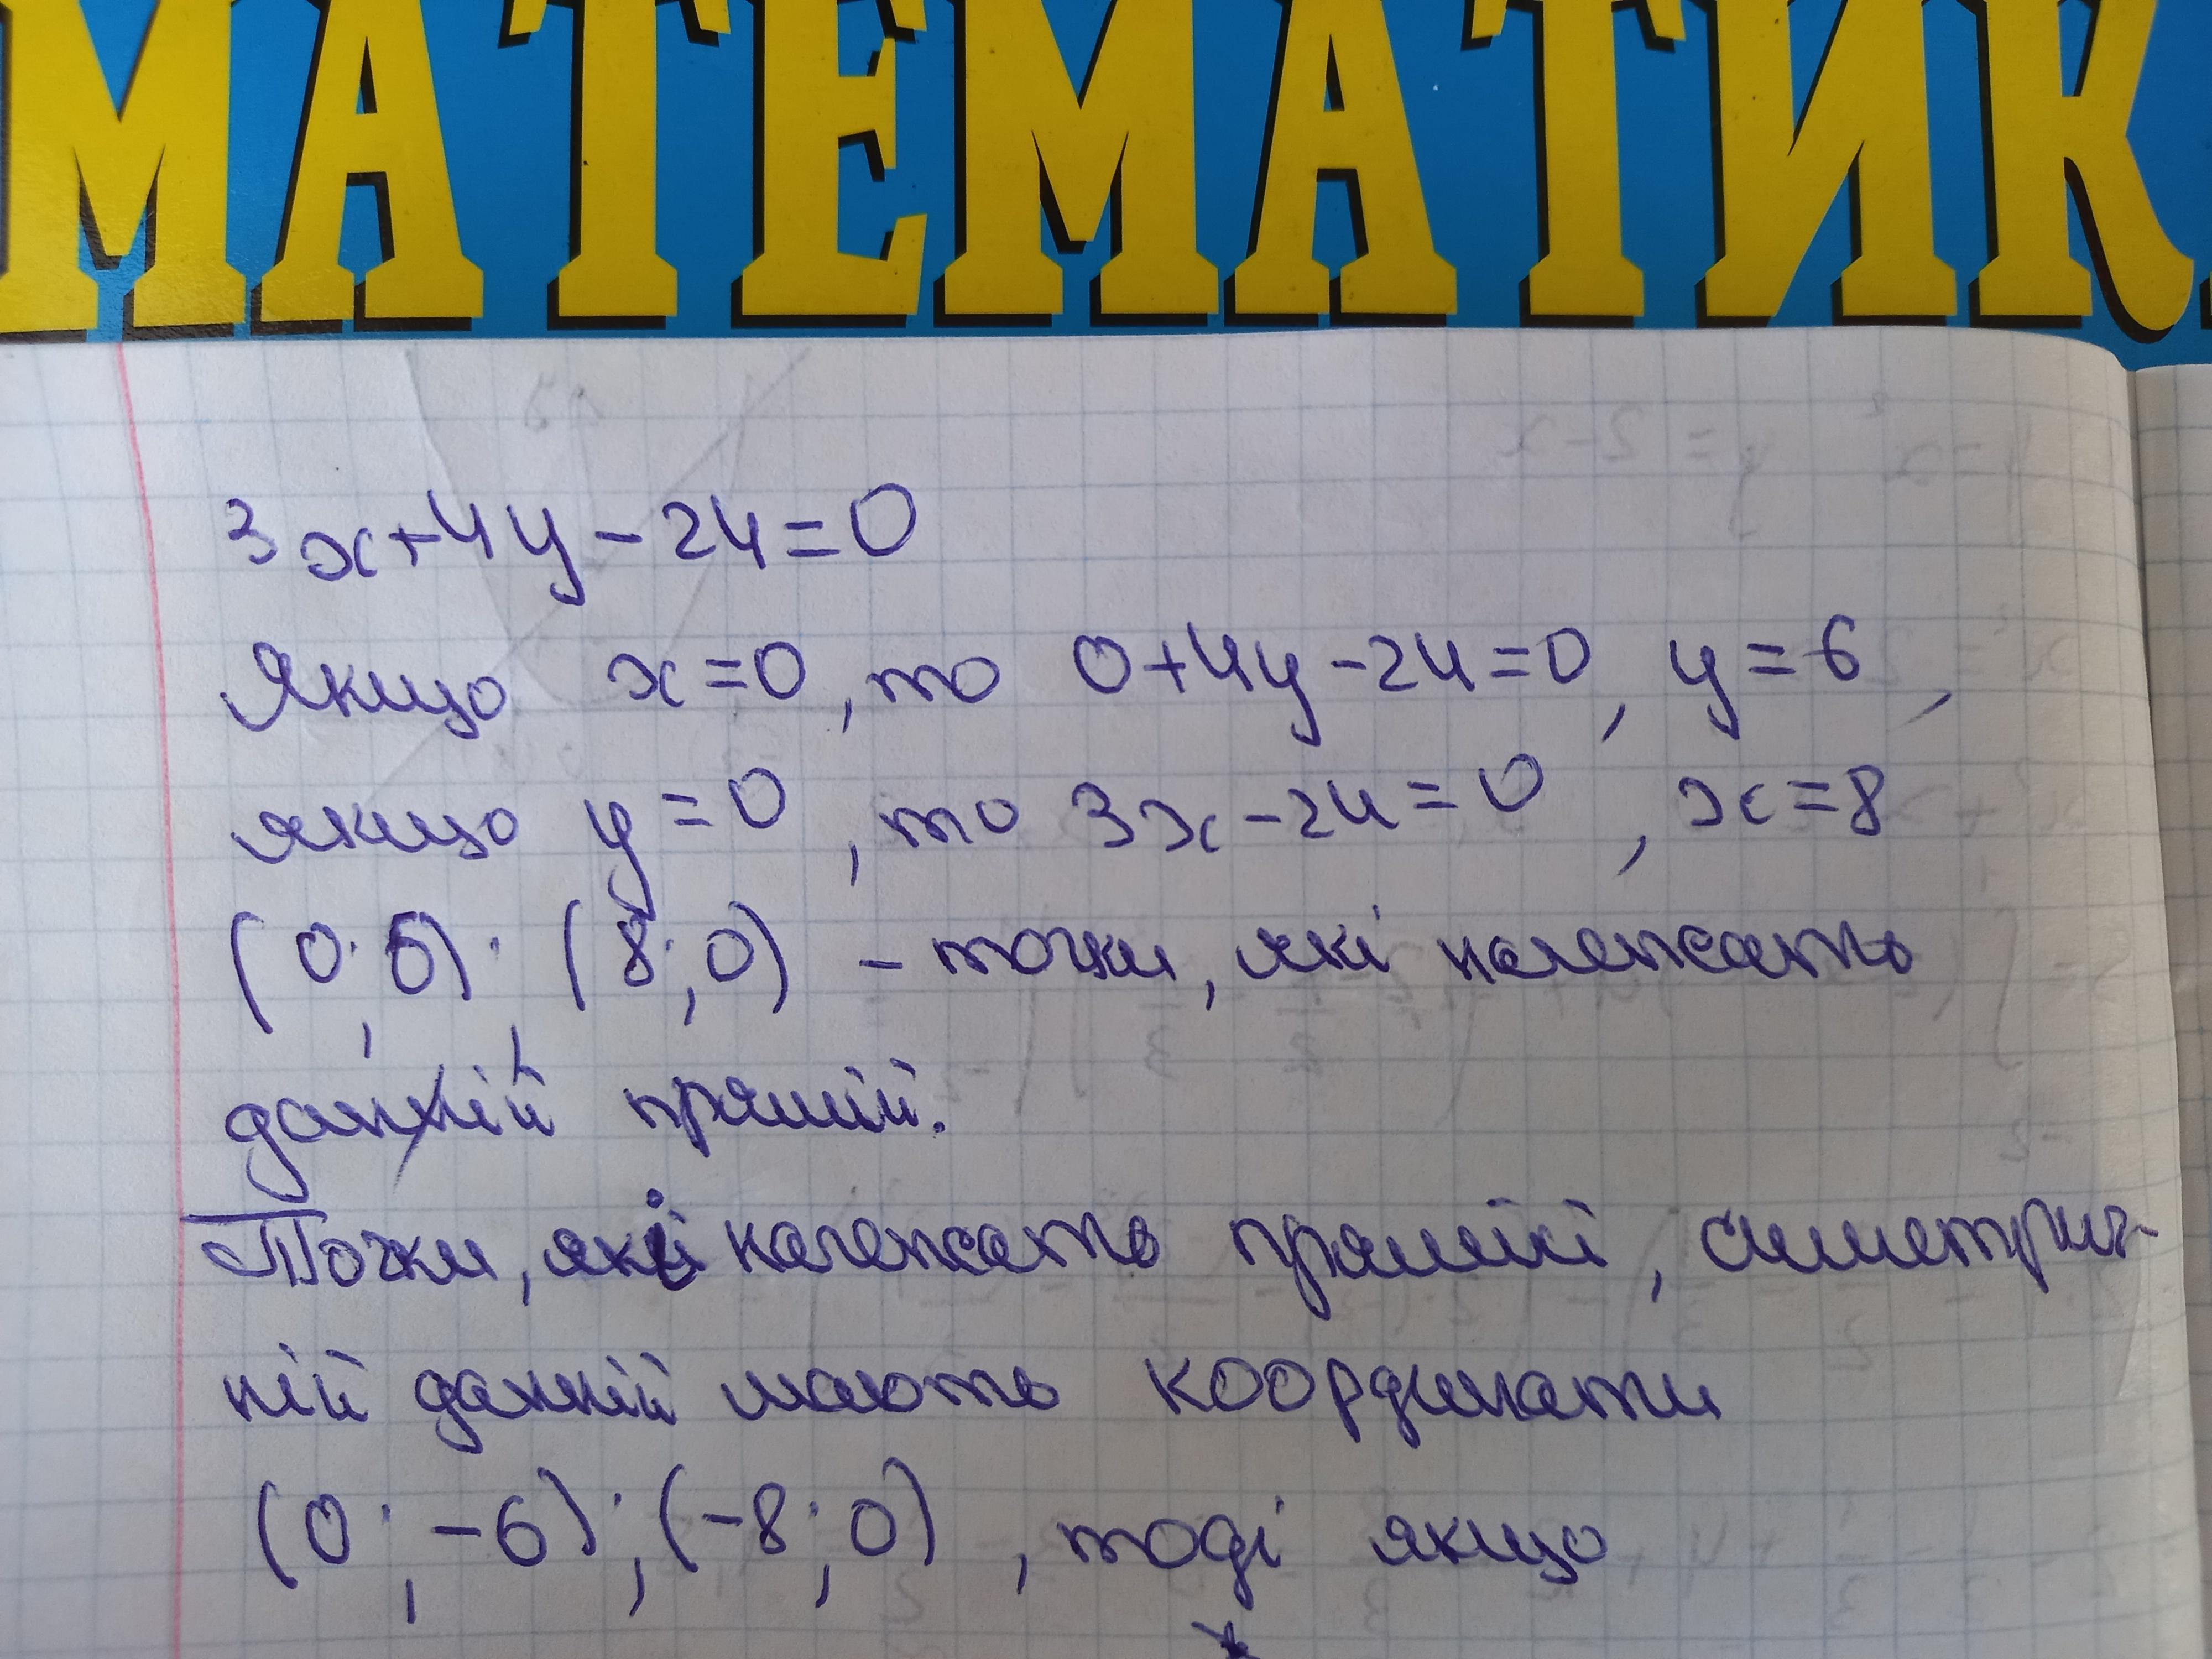 МАТЕМАТИК
3x+4y-24=0
Якщо x=0, то 0+4y-24=0, y=6,
якщо y=0, то 3x-24=0, x=8
(0;6); (8;0) - точки, які належать
даній прямій.
Точки, які належать прямій, симетрич-
ній данній мають координати
(0;-6);(-8;0), тоді якщо